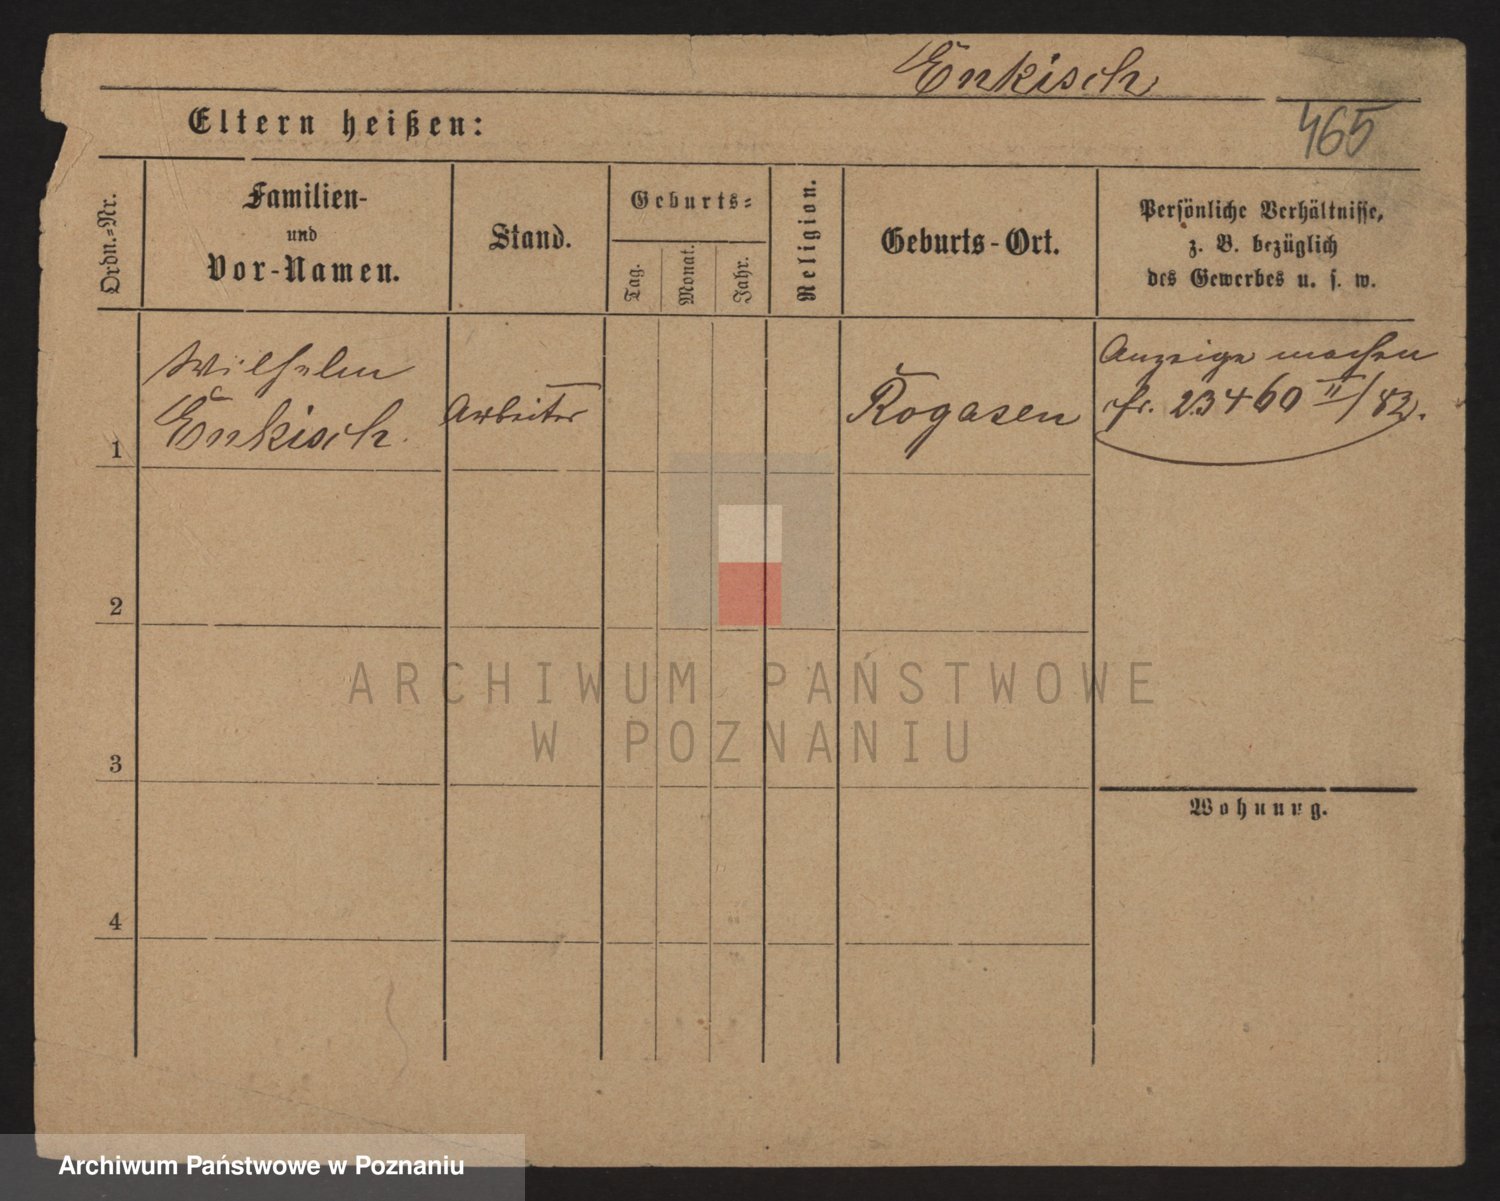 Enkisch
Eltern heißen:
465
Ordn.-Nr.
Familien-
und
Vor-Namen.
Stand.
Geburts-
Tag.
Monat.
Jahr.
Religion.
Geburts-Ort.
Persönliche Verhältnisse,
z. B. bezüglich
des Gewerbes u. s. w.
1
Wilhelm
Enkisch.
Arbeiter
Rogasen
Anzeige machen
cfr. 23460 II/82.
2
3
4
Wohnung.
ARCHIWUM PAŃSTWOWE
W POZNANIU
Archiwum Państwowe w Poznaniu